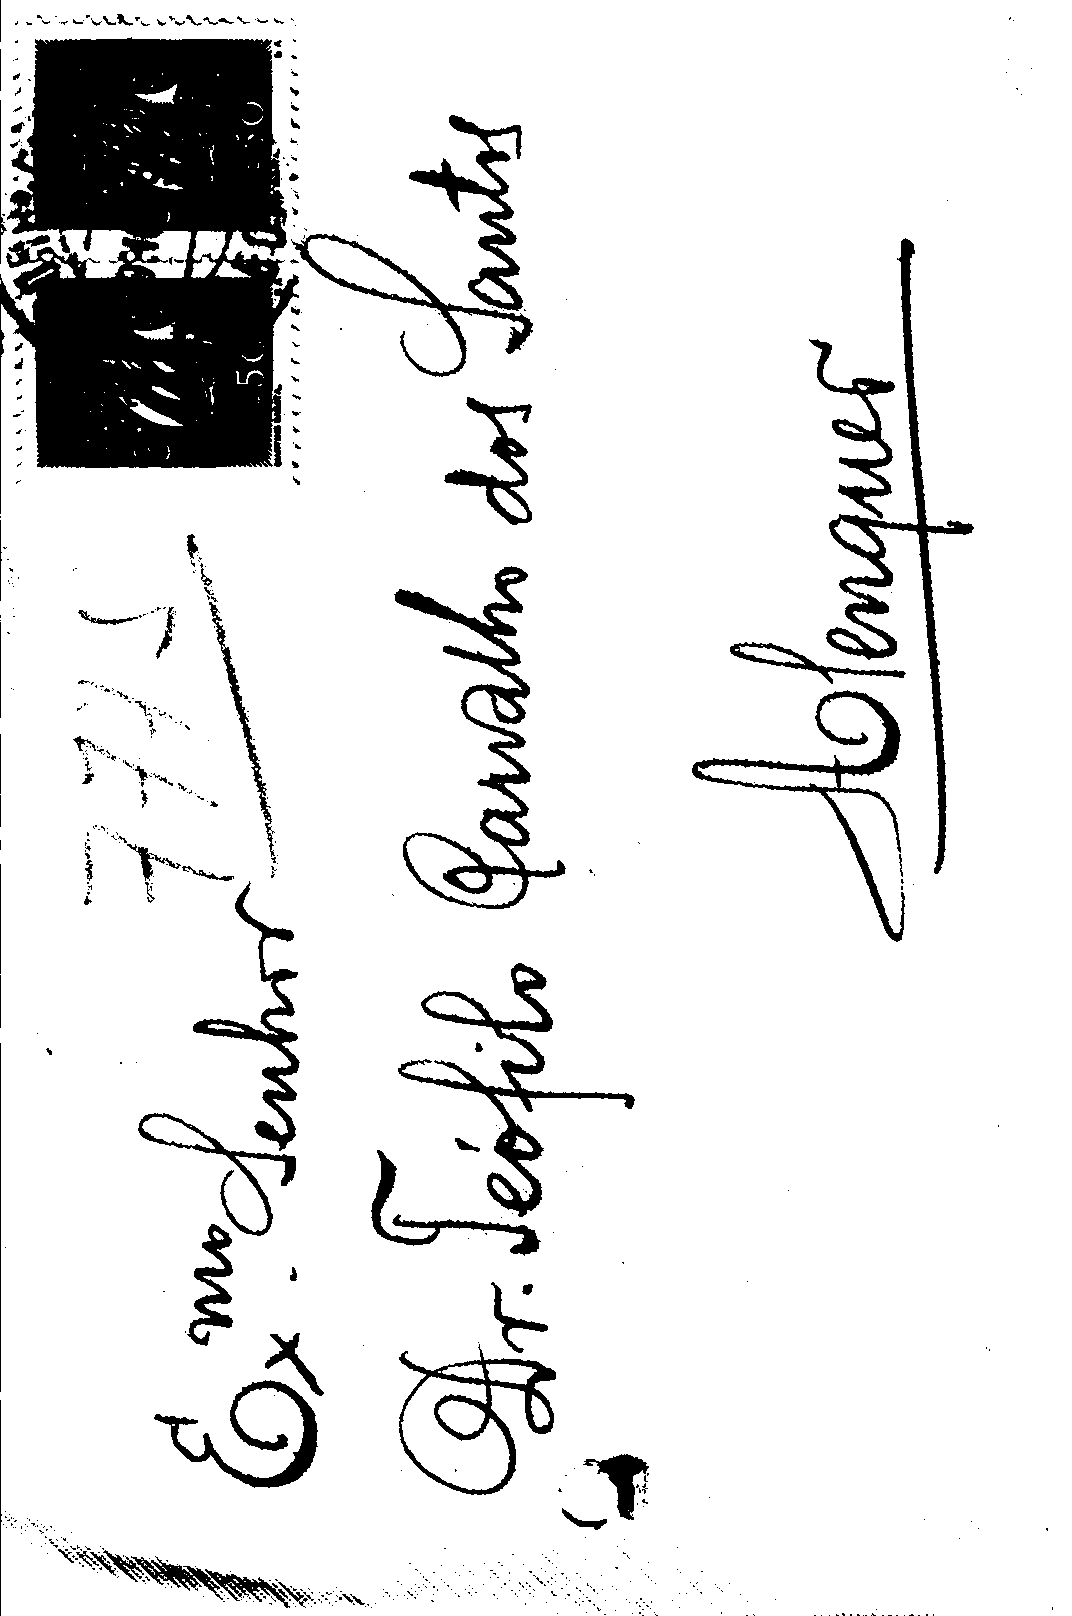 Ex.mo Senhor
Dr. Teófilo Carvalho dos Santos
Alenquer